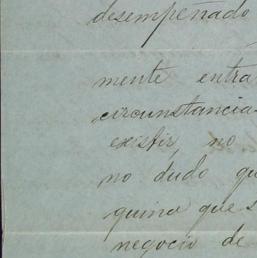 desempeñado
mente entra
circunstancia
existir, no
no dudo qu
quina que s
negocio de